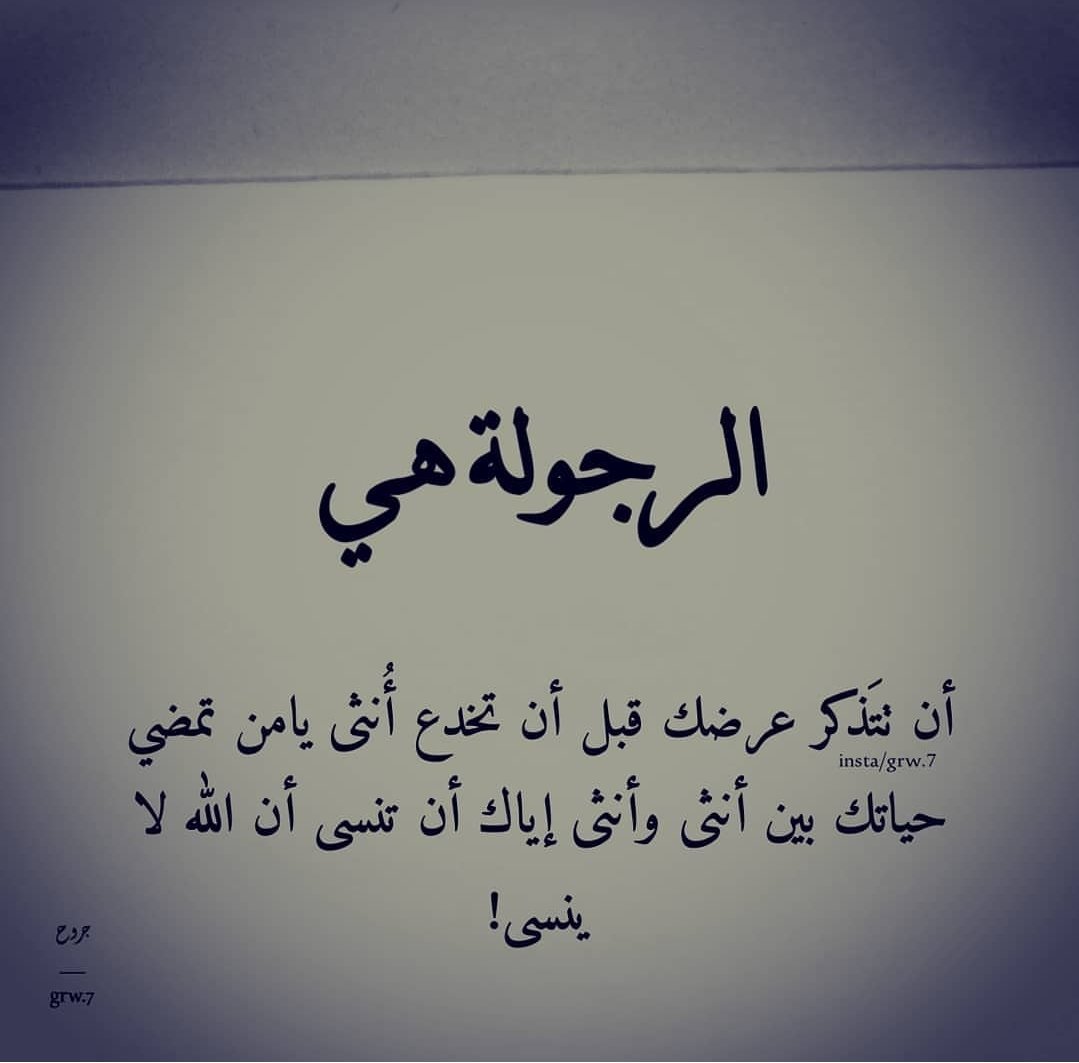 الرجولة هي
أن تتَذكر عرضك قبل أن تخدع أُنثى يامن تمضي
insta/grw.7
حياتك بين أنثى وأنثى إياك أن تنسى أن الله لا
ينسى!
جروح
grw.7